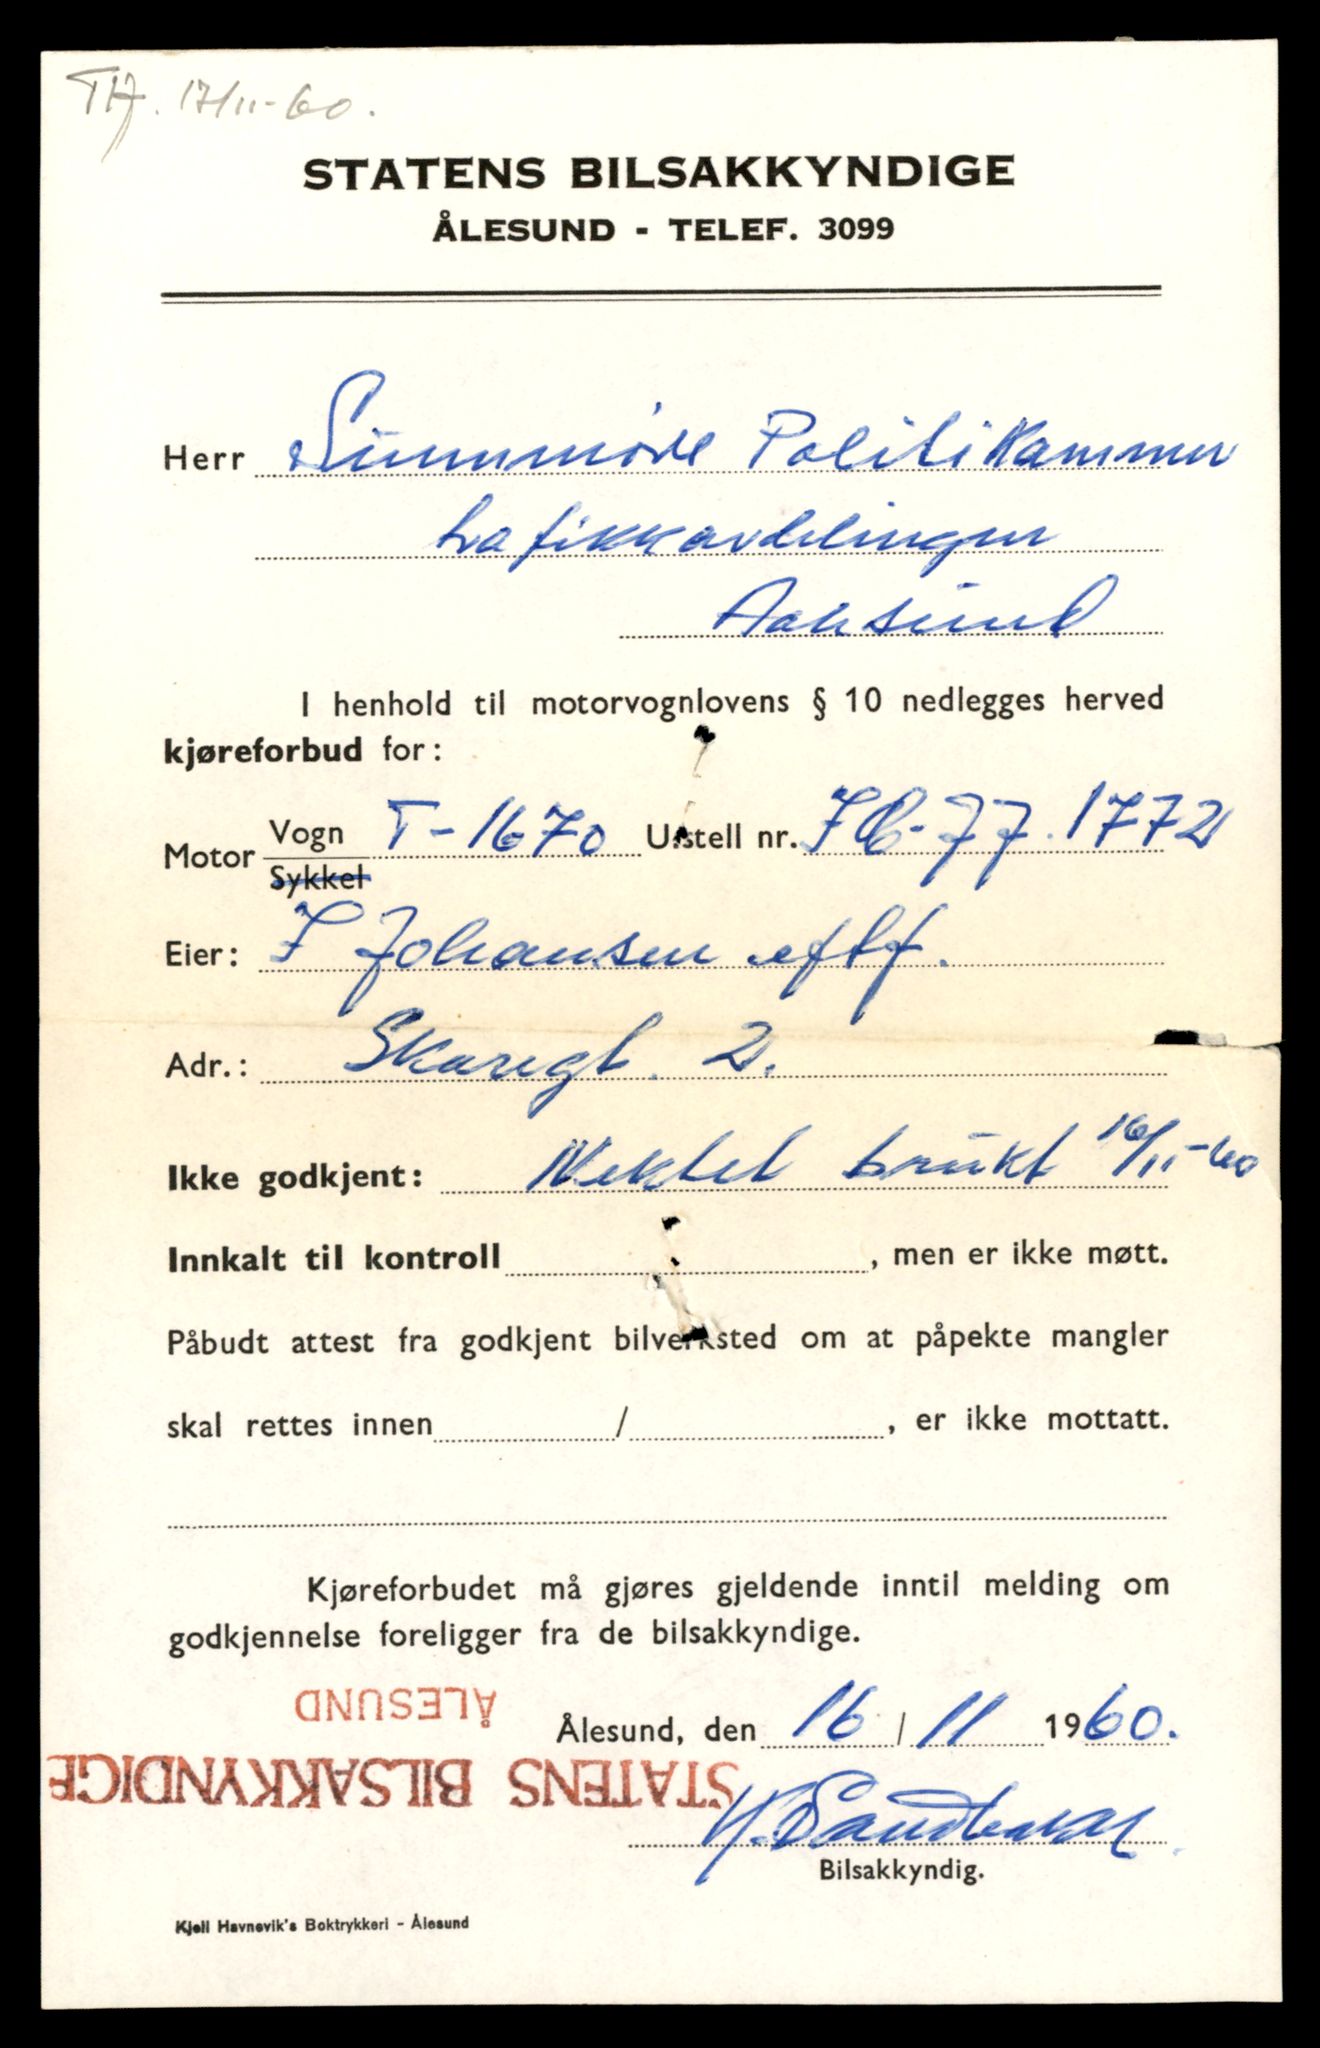 TH. 17/11-60.
STATENS BILSAKKYNDIGE
ÅLESUND - TELEF. 3099
Herr Sunnmøre Politikammer
trafikkavdelingen
Aalesund
I henhold til motorvognlovens § 10 nedlegges herved
kjøreforbud for:
Motor Vogn T-1670 Urstell nr. 77.1772
Sykkel
Eier: I Johansen eftf.
Adr.: Skaregt. 2.
Ikke godkjent: Nektet brukt 16/11-60
Innkalt til kontroll , men er ikke møtt.
Påbudt attest fra godkjent bilverksted om at påpekte mangler
skal rettes innen / , er ikke mottatt.
Kjøreforbudet må gjøres gjeldende inntil melding om
godkjennelse foreligger fra de bilsakkyndige.
ÅLESUND
Ålesund, den 16 / 11 1960.
STATENS BILSAKKYNDIGE
Bilsakkyndig.
Kjell Havnevik's Boktrykkeri - Ålesund